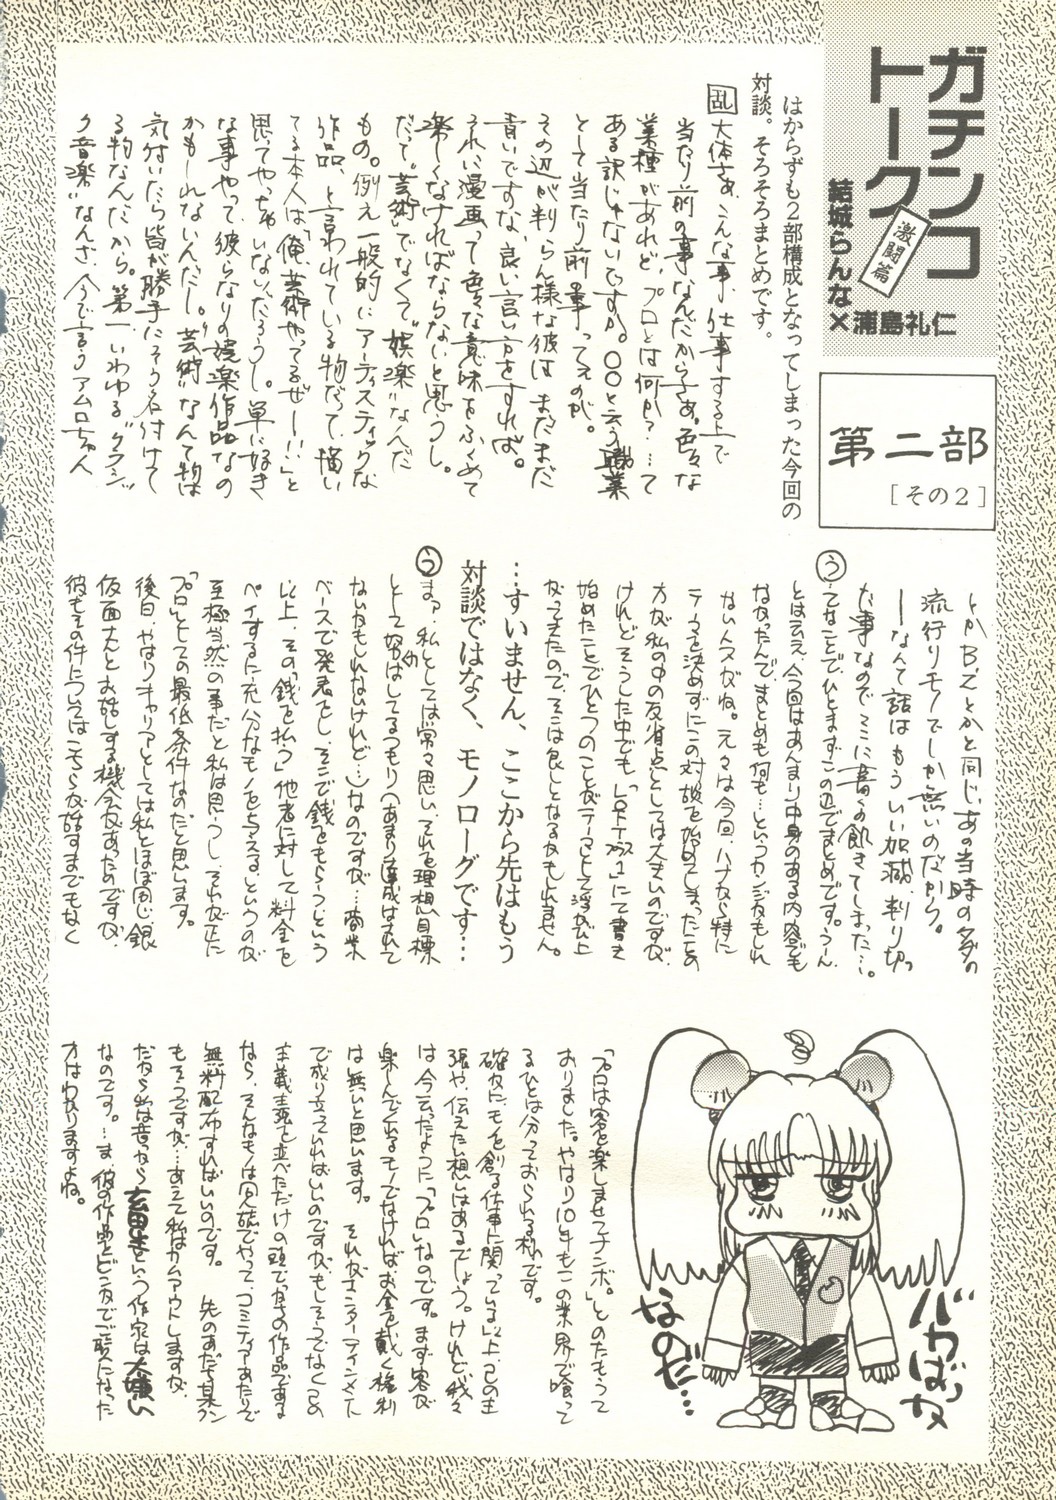 ガチンコ
トーク
激闘篇
結城らんな×浦島礼仁
第二部
[その2]
はからずも2部構成となってしまった今回の
対談。そろそろまとめです。
乱 大体さぁ、こんな事、仕事する上で
当たり前の事なんだからさぁ。色々な
業種があれど、プロとは何か?…って
ある訳じゃないですか。○○と云う職業
として当たり前の事ってのが。
その辺が判らん様な彼はまだまだ
青いですな、良い言い方をすれば。
うれに漫画って色々な意味をふくめて
楽しくなければならないと思うし。
だって〝芸術〟でなくて〝娯楽〟なんだ
もの。例え一般的にアーティスティックな
作品、と言われている物だって、描い
てる本人は、「俺、芸術やってるぜー!!」と
思ってやっちゃいないだろうし。単に好き
な事やって、彼らなりの娯楽作品なの
かもしれないんだし。〝芸術〟なんて物は
気付いたら皆が勝手にそう名付けて
る物なんだから。第一、いわゆる〝クラシッ
ク音楽〟なんざ、今で言うアムロちゃん
とかB'zとかと同じ、あの当時のタダの
流行りモノでしか無いのだから。
ーなんて話はもういい加減、判り切っ
た事なのでミミに書くの飽きてしまった…。
う てなことでひとまずこの辺でまとめです。うん。
とは云え、今回はあんまり中身のある内容でも
なかったんで、まとめも何も…というカンジかもしれ
ない人スがね。元々は今回、ハナから特に
テーマを決めずにこの対談を始めてしまったことの
方が私の中の反省点としては大きいのですが、
けれどそうした中でも、
始めたことでひとつのことがテーマとして浮かび上
がってきたので、そこは良しとなるかもしれません。
…すいません、ここから先はもう
対談ではなく、モノローグです…
う まァ、私としては常々思い、それを理想・目標
として努力はしてるつもり(あまり達成はされて
ないかもしれないけれど…)なのですが…商業
ベースで発表をし、そこで銭をもらうという
以上、その「銭を払う」他者に対して料金を
ペイするに充分なモノを与えるというのが
至極当然の事だと私は思うし、それが正に
「プロ」としての最低条件なのだと思います。
後日、やはりキャリアとしては私とほぼ同じ銀
仮面さんとお話しする機会があったのですが、
彼もその件についてはこちらが話すまでもなく
「プロは客を楽しませてナンボ。」とのたもうて
おりました。やはり10年もこの業界で喰って
るひとは分っておられる様です。
確かにモノを創る仕事に関っている以上、己の主
張や、伝えたい想いはあるでしょう。けれど我々
は、今云ったように「プロ」なのです。まず客が
楽しんでくれるモノでなければお金を戴く権利
は無いと思います。それがエンターテインメント
で成り立っていればいいのですが、もしそうでなく己の
主義主張を並べただけの頭でっかちの作品である
なら、そんなモノは同人誌でやって、コミティアあたりで
無料配布すればいいのです。先のあだち某クン
もそうですが…あえて私はカムアウトしますが、
だから私は昔から玄田生という作家は大嫌い
なのです。…ま、彼の作品をどこかでご覧になった
方はわかりますよね。
バカばっか
なのだ…